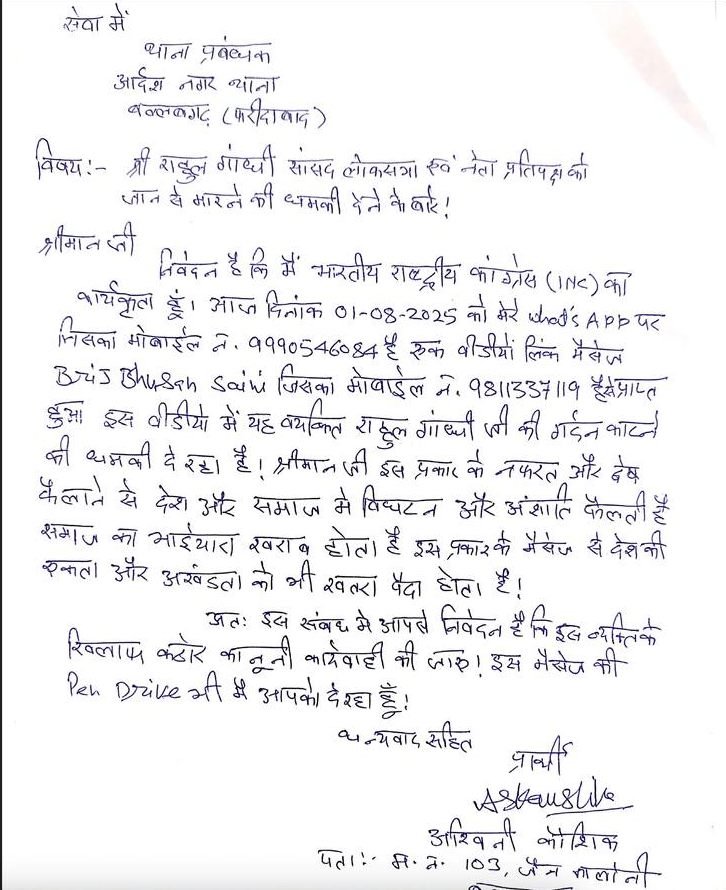 सेवा में
थाना प्रबंधक
आर्दश नगर थाना
बल्लबगढ़ (फरीदाबाद)
विषय:- श्री राहुल गांधी सांसद लोकसभा एवं नेता प्रतिपक्ष को
जान से मारने की धमकी देने के बारे!
श्रीमान जी
निवेदन है कि मैं भारतीय राष्ट्रीय कांग्रेस (INC) का
कार्यकृता हूं। आज दिनांक 01-08-2025 को मेरे what's APP पर
जिसका मोबाईल न. 9990546084 है एक वीडीयों लिंक मैसेज
Brij Bhusan Saini जिसका मोबाईल न. 9811337119 है से प्राप्त
हुआ इस वीडीयो में यह व्यकित राहुल गांधी जी की गर्दन काटने
की धमकी दे रहा है! श्रीमान जी इस प्रकार के नफरत और देष
फैलाने से देश और समाज मे विघटन और अंशाति फैलती है
समाज का भाईचारा खराब होता है इस प्रकार के मैसेज से देश की
एकता और अखंडता को भी खतरा पैदा होता है!
अत: इस संबध मे आपसे निवेदन है कि इस व्यक्ति के
खिलाफ कठोर कानूनी कार्यवाही की जाए! इस मैसेज की
Pen Drive भी मैं आपको दे रहा हूँ!
धन्यवाद सहित
प्रार्थी
ASKaushik
अश्विनी कौशिक
पता:- म. न. 103, जैन कालोनी